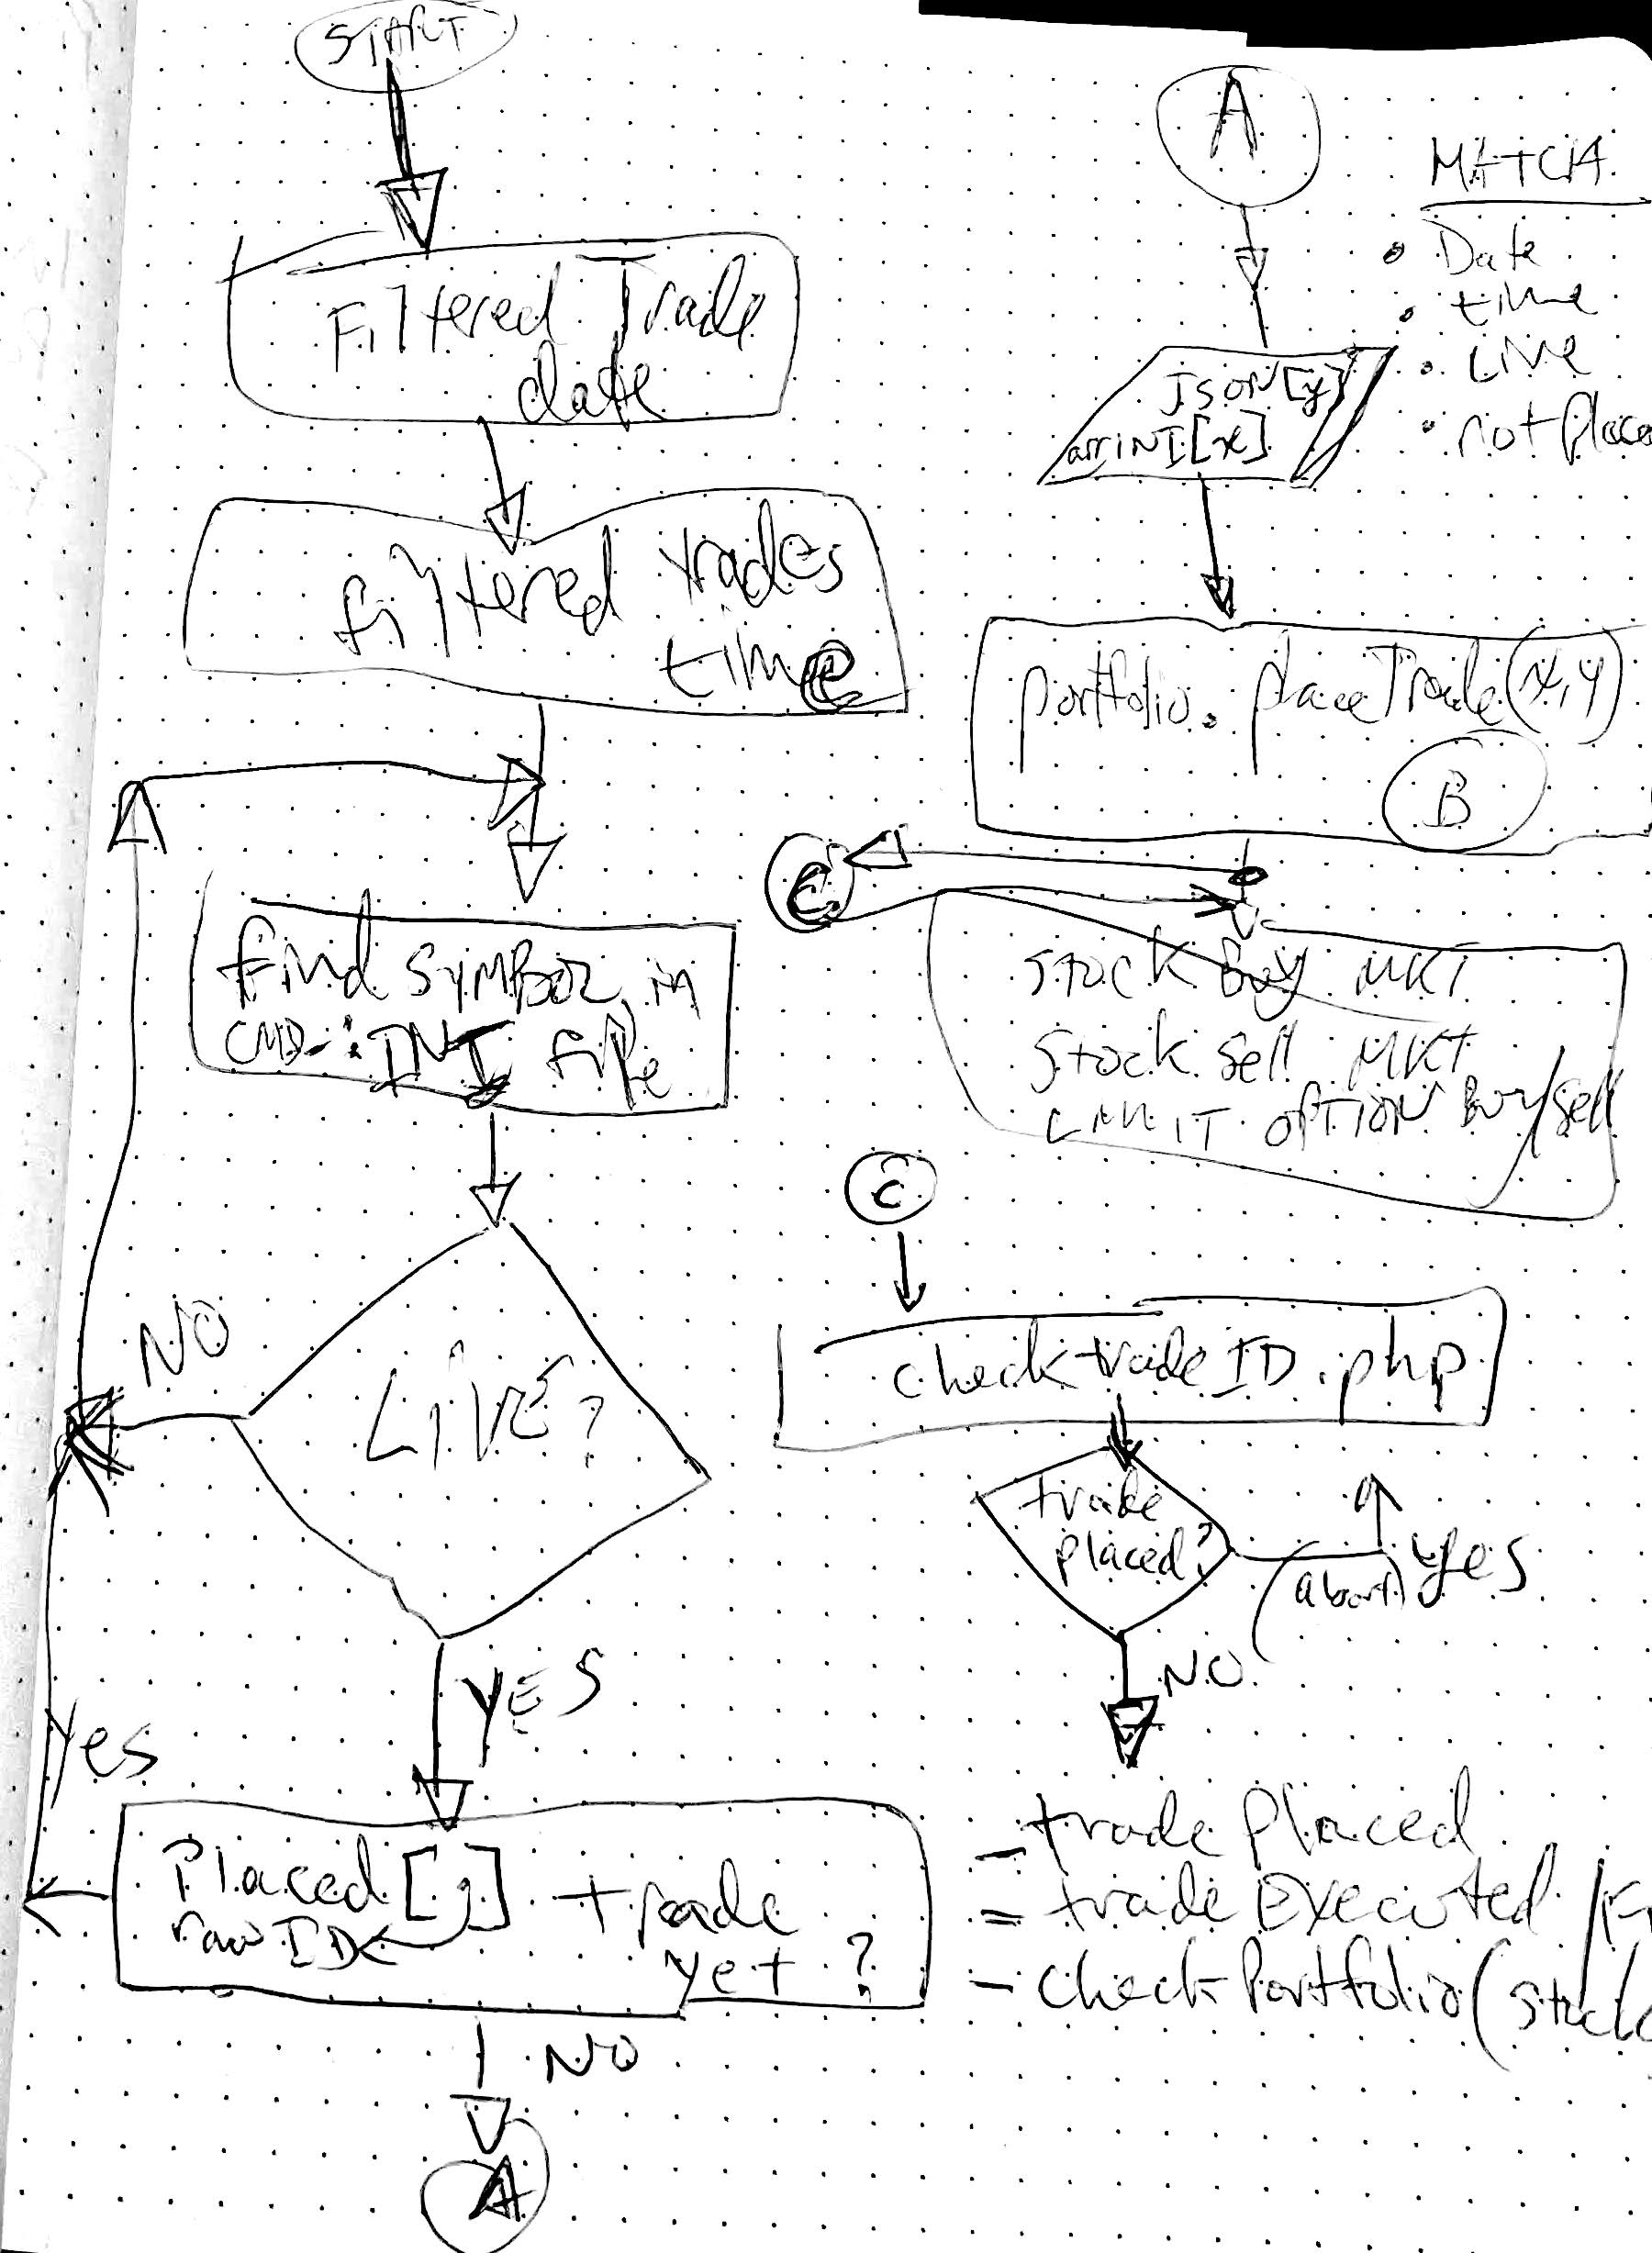 START
Filtered Trade
date
filtered trades
time
find SYMBOL in
CMD.:INI file
LIVE?
NO
YES
Yes
Placed[j] trade
rawID
yet ?
NO
A
A
MATCH
• Date
• time
• Live
• not place
JSON[y]
arrINI[x]
portfolio.placeTrade(x,y)
B
C
Stock Buy MKT
Stock sell MKT
LIMIT OPTION Buy/Sell
C
check trade ID.php
trade
placed?
(abort)
yes
NO
- trade Placed
= trade Executed /F
- check Portfolio(stock